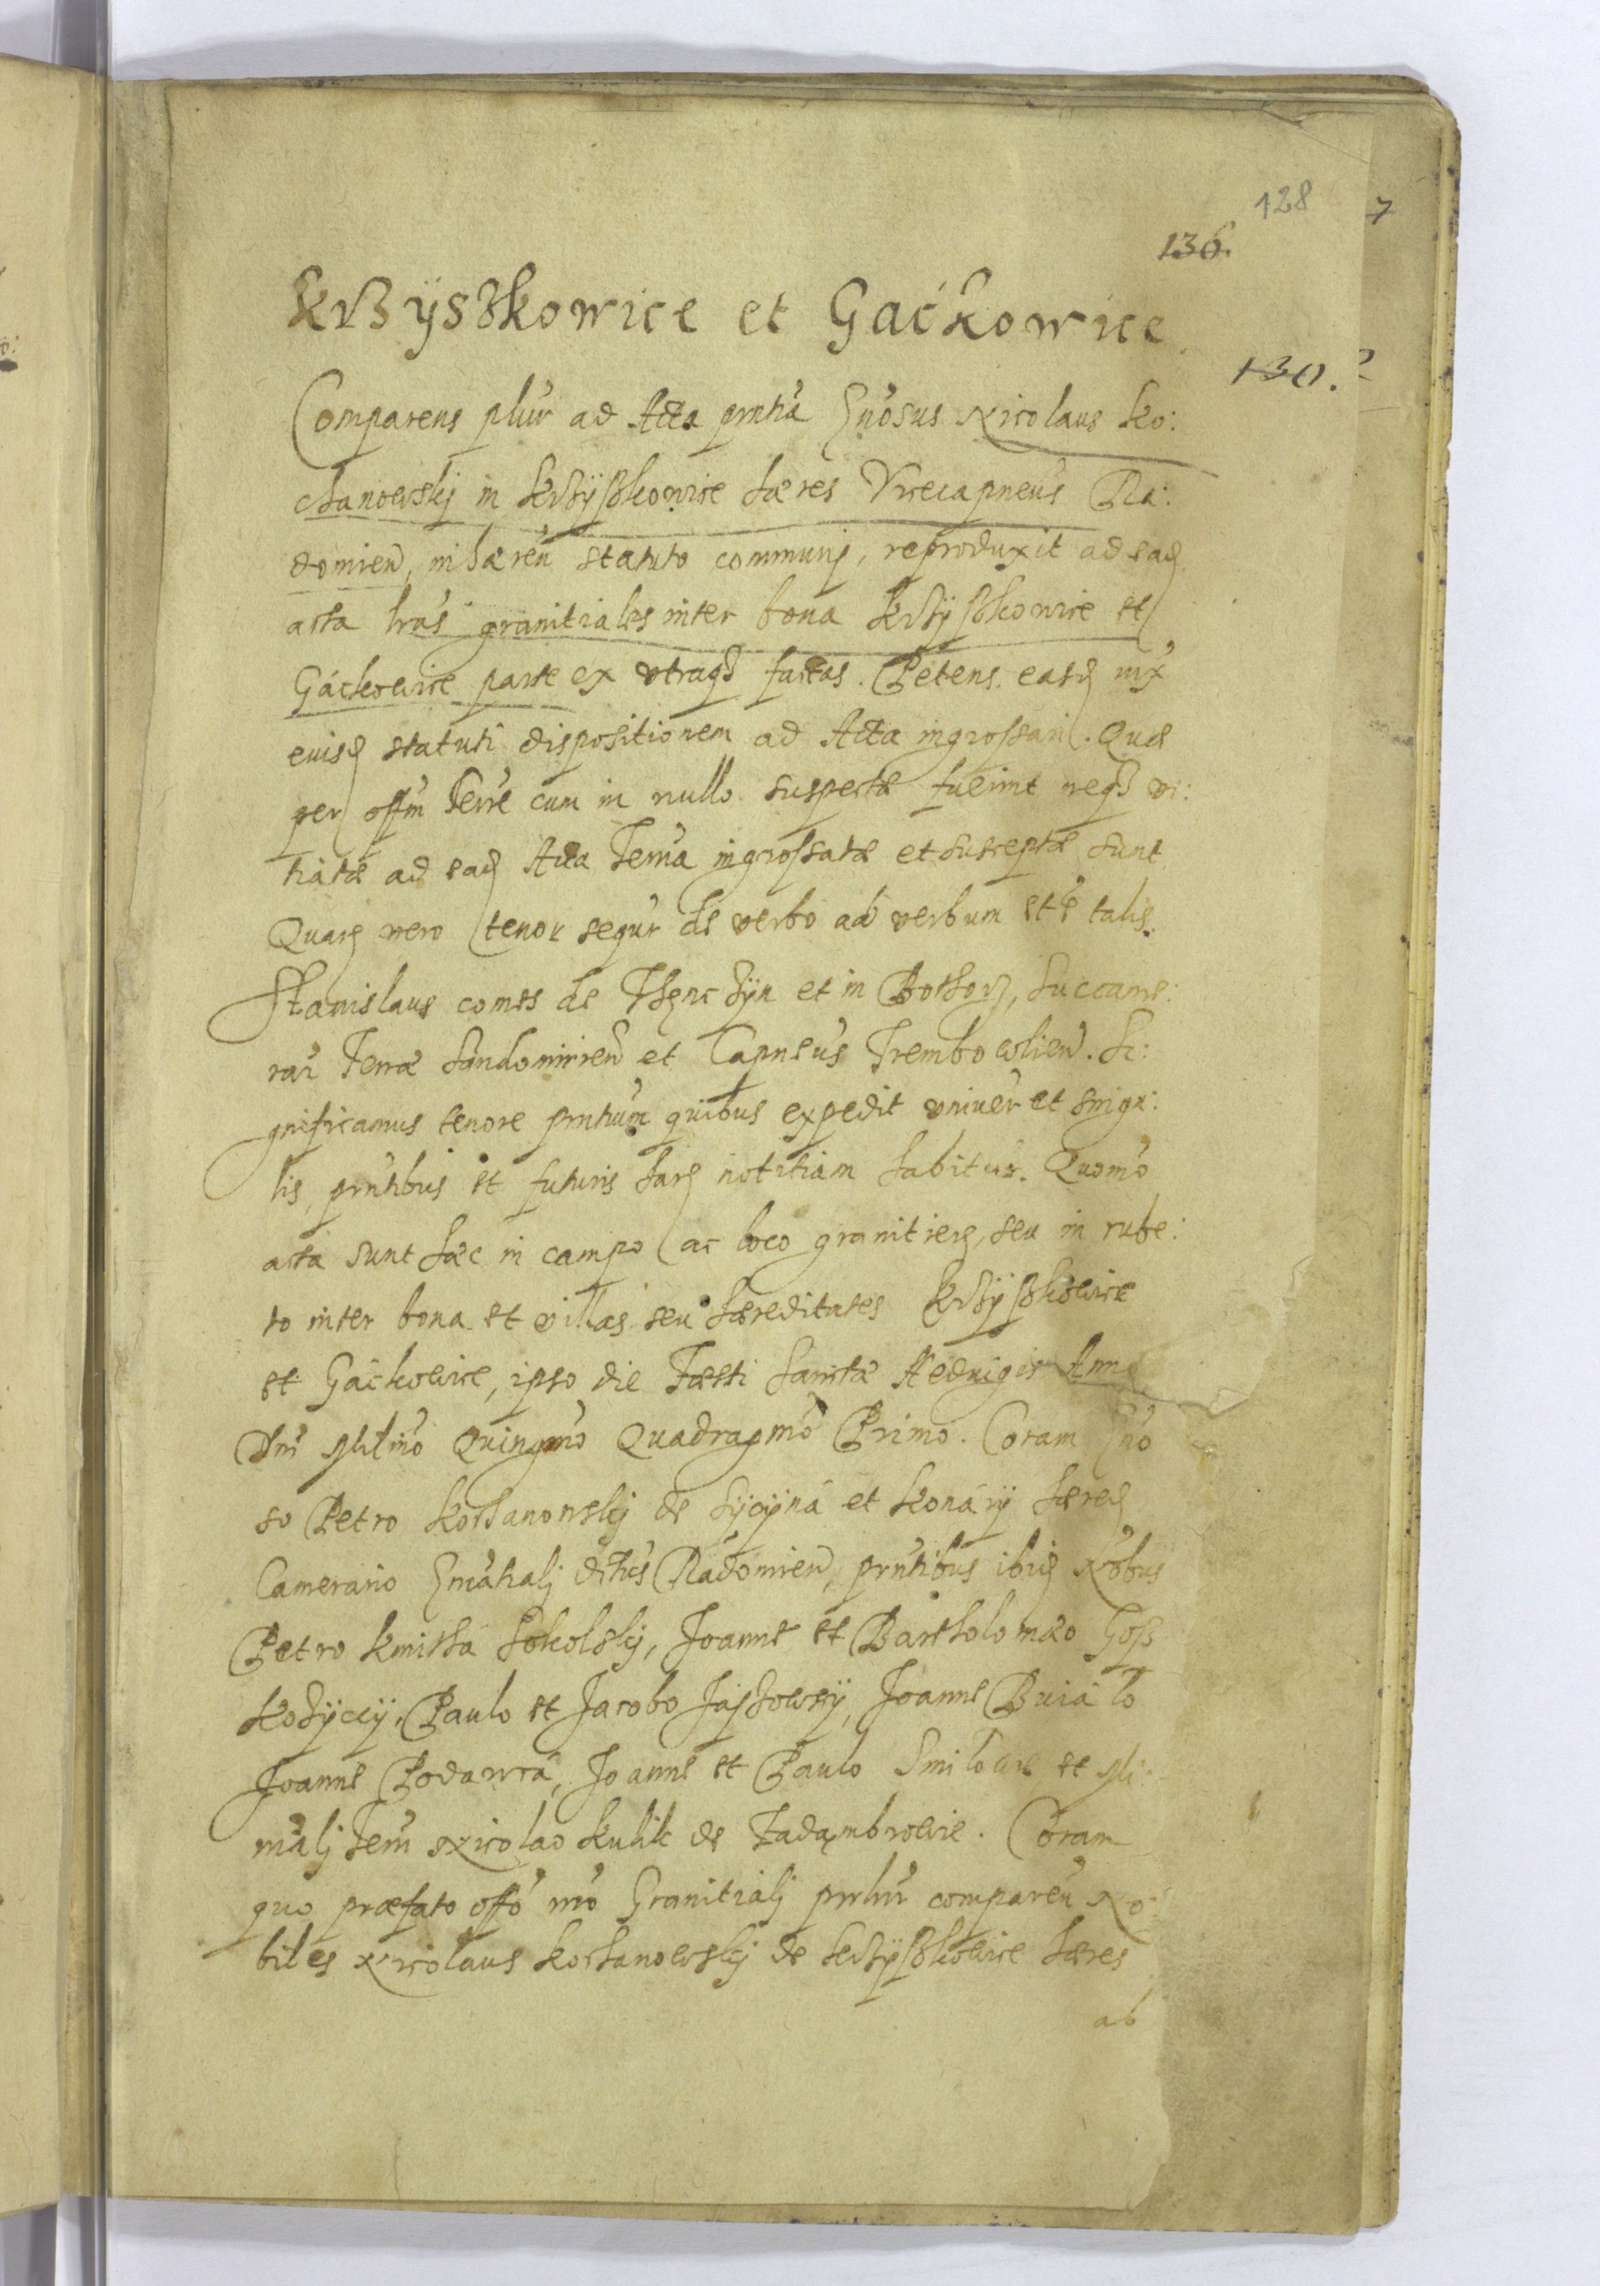 128 7
136.
Krzÿszkowice et Gaćkowice
130.
Comparens plr̃ ad Acta prñtia Gñosus Nicolaus Ko:
chanowskj in Krzÿszkowice hæres Vicecapneus Ra:
domien, inhæren statuto communj, reproduxit ad ead
acta lr̃as granitiales inter bona Krzÿszkowice et
Gáckowice parte ex vtraq3 factas. Petens easd iux̃
euisd statuti dispositionem ad Acta ingrossari. Quæ
per offm̃ Terr̃e cum in nullo suspectæ fuerint neq3 vi:
tiatæ ad ead Acta Terr̃ia ingrossatæ et susceptæ sunt
Quarũ vero tenor sequr̃ de verbo ad verbum et ẽ talis.
Stanislaus comes de Thęnczÿn et in Succame:
rar̃ Terræ Sandomirien et Capneus Trembowlien. Si:
gnificamus tenore prñtium quibus expedit vniuer̃ et singu:
lis, prñtibus et futuris harũ notitiam habitur̃. Quomõ
acta sunt hæc in campo ac loco granitier̃, seu in rube:
to inter bona et villas seu hæreditates Krzÿszkowice
et Gáckowice, ipso die Festi Sanctæ Heduigis Anno
Dnĩ Milm̃o Quingm̃o Quadragm̃o Primo. Coram Gño
so Petro Kochanowskj de Sÿcÿná et Konárÿ hæred
Camerario Grñitialj Radomien, prñtibus ibid Nobus
Petro Kmithá Sokolskj, Joanne et Bartholomæo Gosz
Paulo et Jacobo Joanne
Joanne Joanne et Paulo et Mi:
Nicolao Kulik de Coram
quo præfato offõ nrõ Granitialj comparen No
biles Nicolaus Kochanowskj de Krzÿszkowice hæres
ab